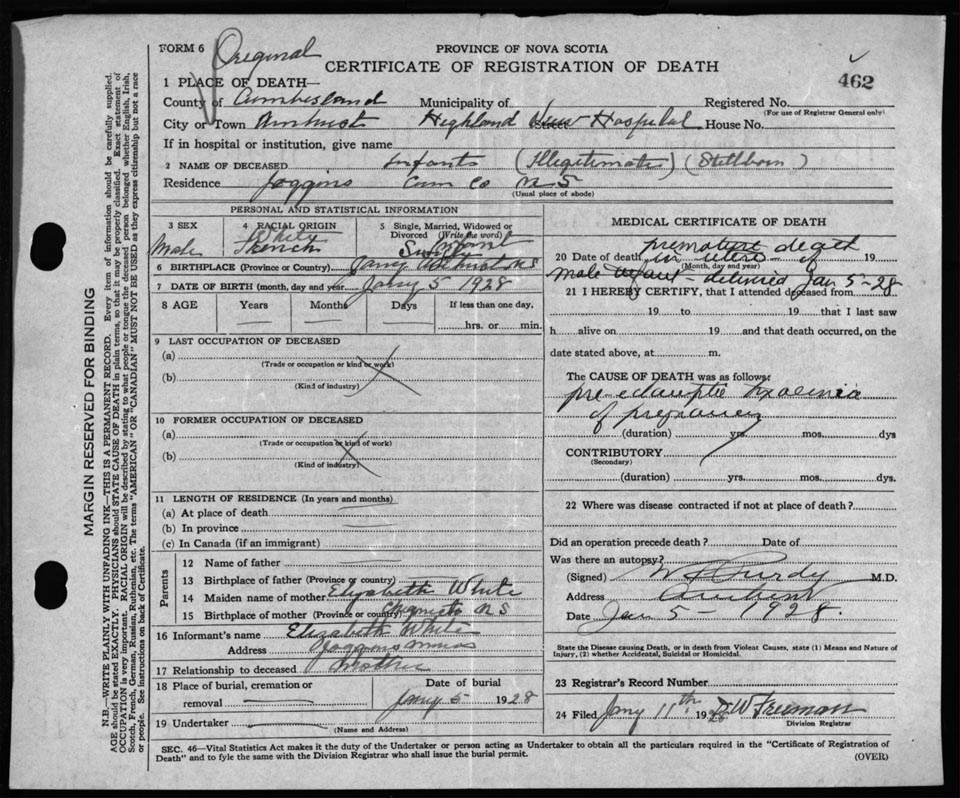 FORM 6 Original
PROVINCE OF NOVA SCOTIA
CERTIFICATE OF REGISTRATION OF DEATH
462
1 PLACE OF DEATH—
County of Cumberland Municipality of Registered No.
(For use of Registrar General only)
City or Town Amherst Highland View Hospital House No.
If in hospital or institution, give name
2 NAME OF DECEASED Infants (Illegitimate) (Stillborn)
Residence Joggins Cum Co N S
(Usual place of abode)
PERSONAL AND STATISTICAL INFORMATION
3 SEX 4 RACIAL ORIGIN 5 Single, Married, Widowed or Divorced (Write the word)
Male White French Infant
6 BIRTHPLACE (Province or Country) Amherst NS
7 DATE OF BIRTH (month, day and year) Jany 5 1928
8 AGE Years Months Days If less than one day,
hrs. or min.
9 LAST OCCUPATION OF DECEASED
(a)
(Trade or occupation or kind of work)
(b)
(Kind of industry)
10 FORMER OCCUPATION OF DECEASED
(a)
(Trade or occupation or kind of work)
(b)
(Kind of industry)
11 LENGTH OF RESIDENCE (In years and months)
(a) At place of death
(b) In province
(c) In Canada (if an immigrant)
Parents
12 Name of father
13 Birthplace of father (Province or country)
14 Maiden name of mother Elizabeth White
15 Birthplace of mother (Province or country) NS
16 Informant's name Elizabeth White
Address Joggins Mines
17 Relationship to deceased Mother
18 Place of burial, cremation or removal Date of burial
Jany 5 1928
19 Undertaker
(Name and Address)
MEDICAL CERTIFICATE OF DEATH
premature death
20 Date of death in utero of 19
(Month, day and year)
male infant - delivered Jan 5-28
21 I HEREBY CERTIFY, that I attended deceased from
19 to 19 that I last saw
h alive on 19 and that death occurred, on the
date stated above, at m.
The CAUSE OF DEATH was as follows:
pre eclamptic toxaemia
of pregnancy
(duration) yrs. mos. dys
CONTRIBUTORY
(Secondary)
(duration) yrs. mos. dys.
22 Where was disease contracted if not at place of death?
Did an operation precede death? Date of
Was there an autopsy?
(Signed) Purdy M.D.
Address Amherst
Date Jan 5 - 1928.
State the Disease causing Death, or in death from Violent Causes, state (1) Means and Nature of
Injury, (2) whether Accidental, Suicidal or Homicidal.
23 Registrar's Record Number
24 Filed Jany 11th 1928 Freeman
Division Registrar
SEC. 46—Vital Statistics Act makes it the duty of the Undertaker or person acting as Undertaker to obtain all the particulars required in the "Certificate of Registration of
Death" and to fyle the same with the Division Registrar who shall issue the burial permit.
(OVER)
MARGIN RESERVED FOR BINDING
N.B.—WRITE PLAINLY WITH UNFADING INK—THIS IS A PERMANENT RECORD. Every item of information should be carefully supplied.
AGE should be stated EXACTLY. PHYSICIANS should STATE CAUSE OF DEATH in plain terms, so that it may be properly classified. Exact statement of
OCCUPATION is very important. RACIAL ORIGIN will be described by stating to what people or tongue the deceased person belonged whether English, Irish,
Scotch, French, German, Russian, Ruthenian, etc. The terms "AMERICAN" OR "CANADIAN" MUST NOT BE USED as they express citizenship but not a race
or people. See instructions on back of Certificate.